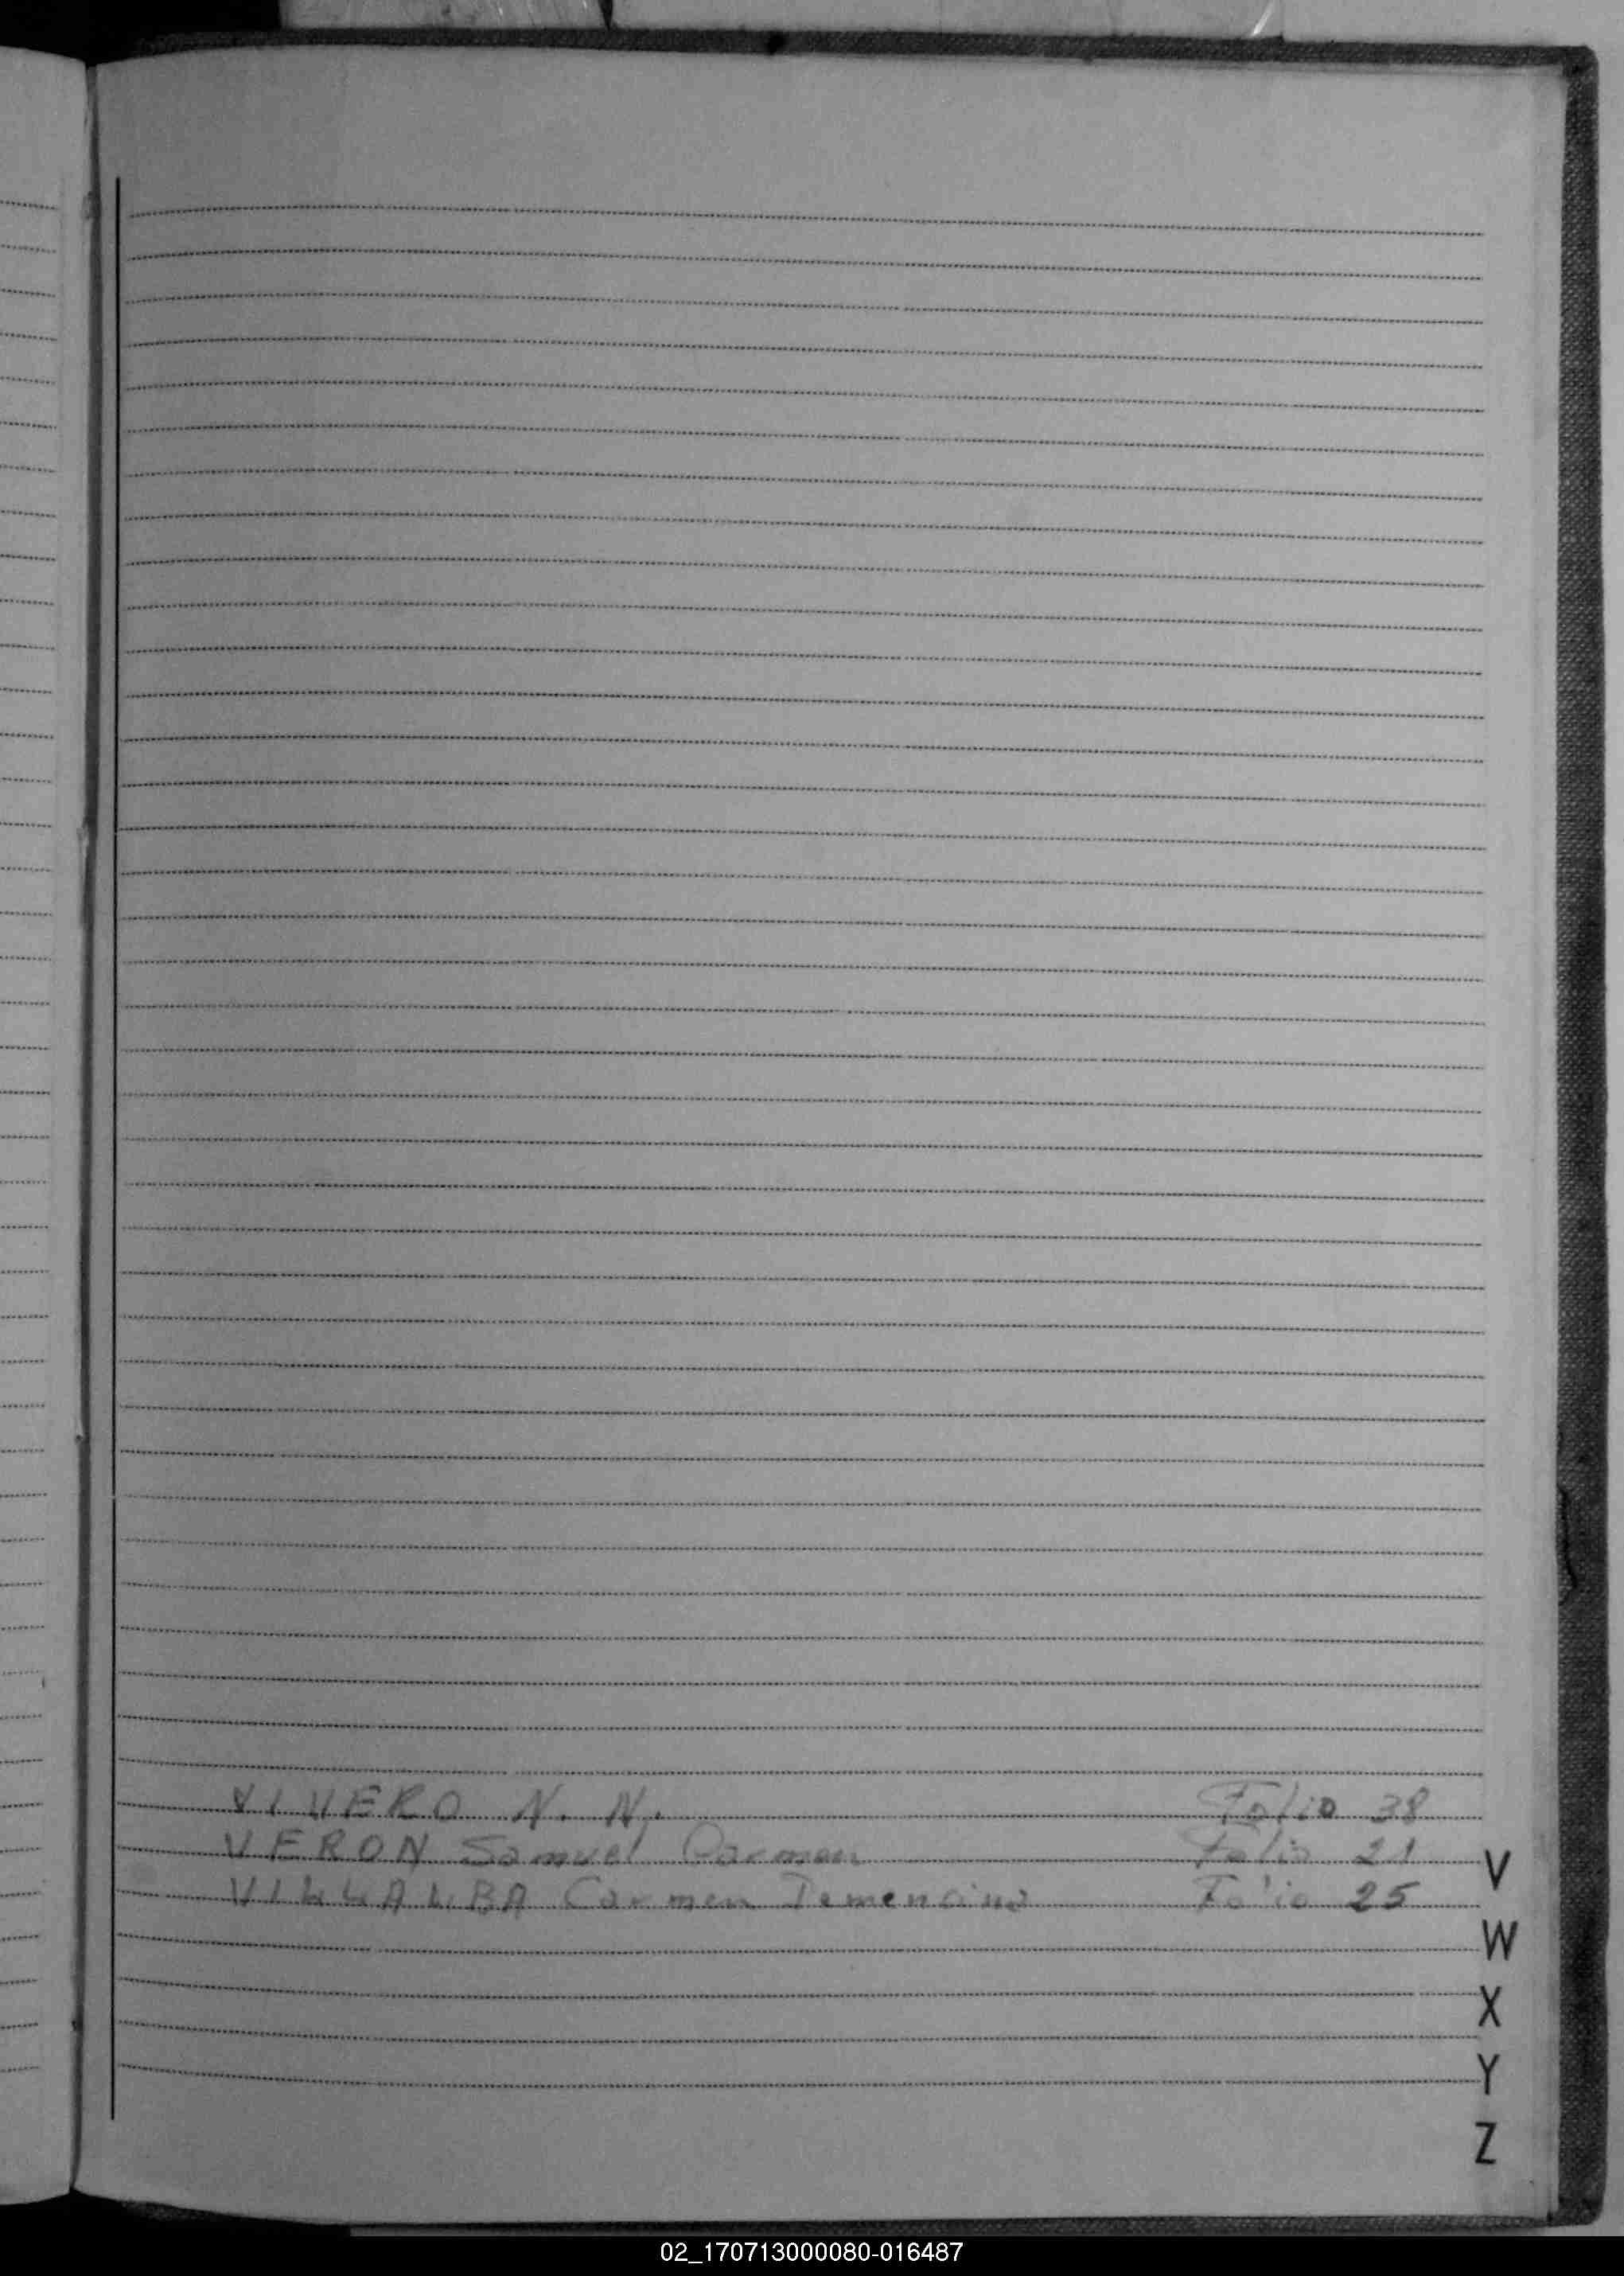 VIVERO N. N. Folio 38
VERON Samuel Carmen Folio 21
VILLALBA Carmen Folio 25
V
W
X
Y
Z
02_170713000080-016487